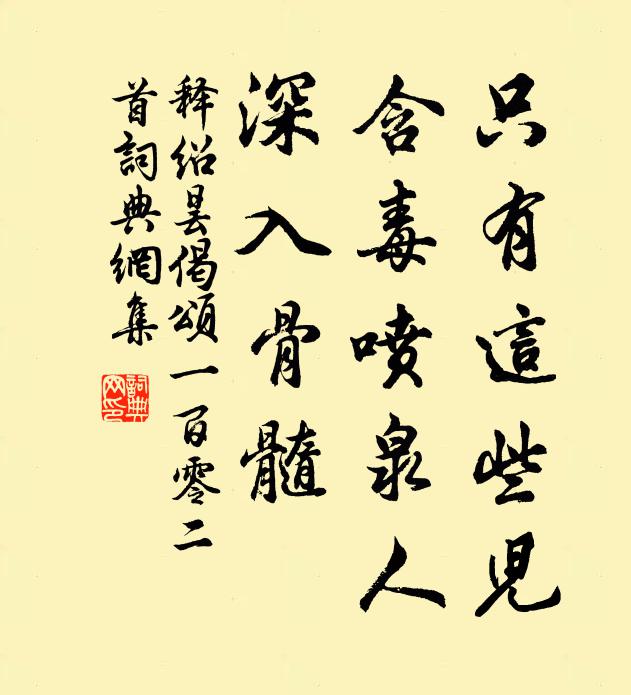 只有這些兒
含毒噴泉人
深入骨髓
釋紹曇偈頌一百零二
首詞典網集
詞典網印